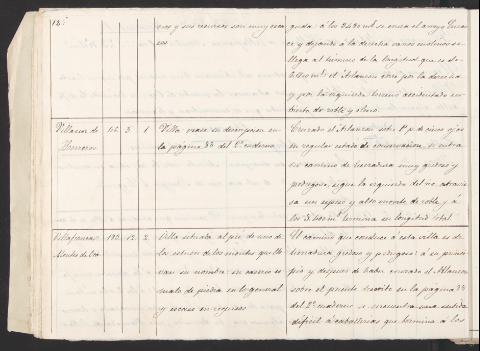 12
cos y sus recursos son muy esca
sos
guda: á los 2480 mts se cruza el arroyo
y dejando á la derecha varios molinos se
llega al termino de la longitud que es de
mts el Arlanzon corre por la derecha
y por la izquierda terreno accidentado cu-
bierto de roble y olivo.
Villasur de
Herreros
3
1
Villa: vease su descripcion en
la pagina 33 del 2º cuaderno
Cruzado el Arlanzon sobre 1 p. de cinco ojos
en regular estado de conservacion, se entra
en camino de herradura muy quebrado y
pedregoso, sigue la izquierda del rio, atravie
sa un espeso y alto monte de roble, y á
los mts termina su longitud total.
Villafranca
Montes de Oca
12
2
Villa situada al pie de uno de
los estribos de los montes que lle
van su nombre: su caserio es
malo de piedra en lo general
y escaso en recursos
El camino que conduce á esta villa es de
herradura, gredoso y pedregoso: á su princi-
pio y despues de haber cruzado el Arlanzon
sobre el puente descrito en la pagina 33
del 2º cuaderno, se encuentra una subida
dificil á caballerias que termina á los